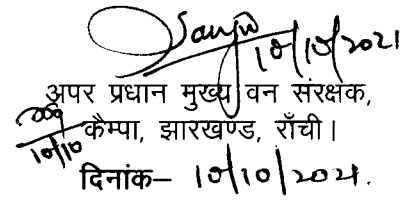 10/10/2021
अपर प्रधान मुख्य वन संरक्षक,
कैम्पा, झारखण्ड, राँची।
10/10
दिनांक– 10/10/2021.